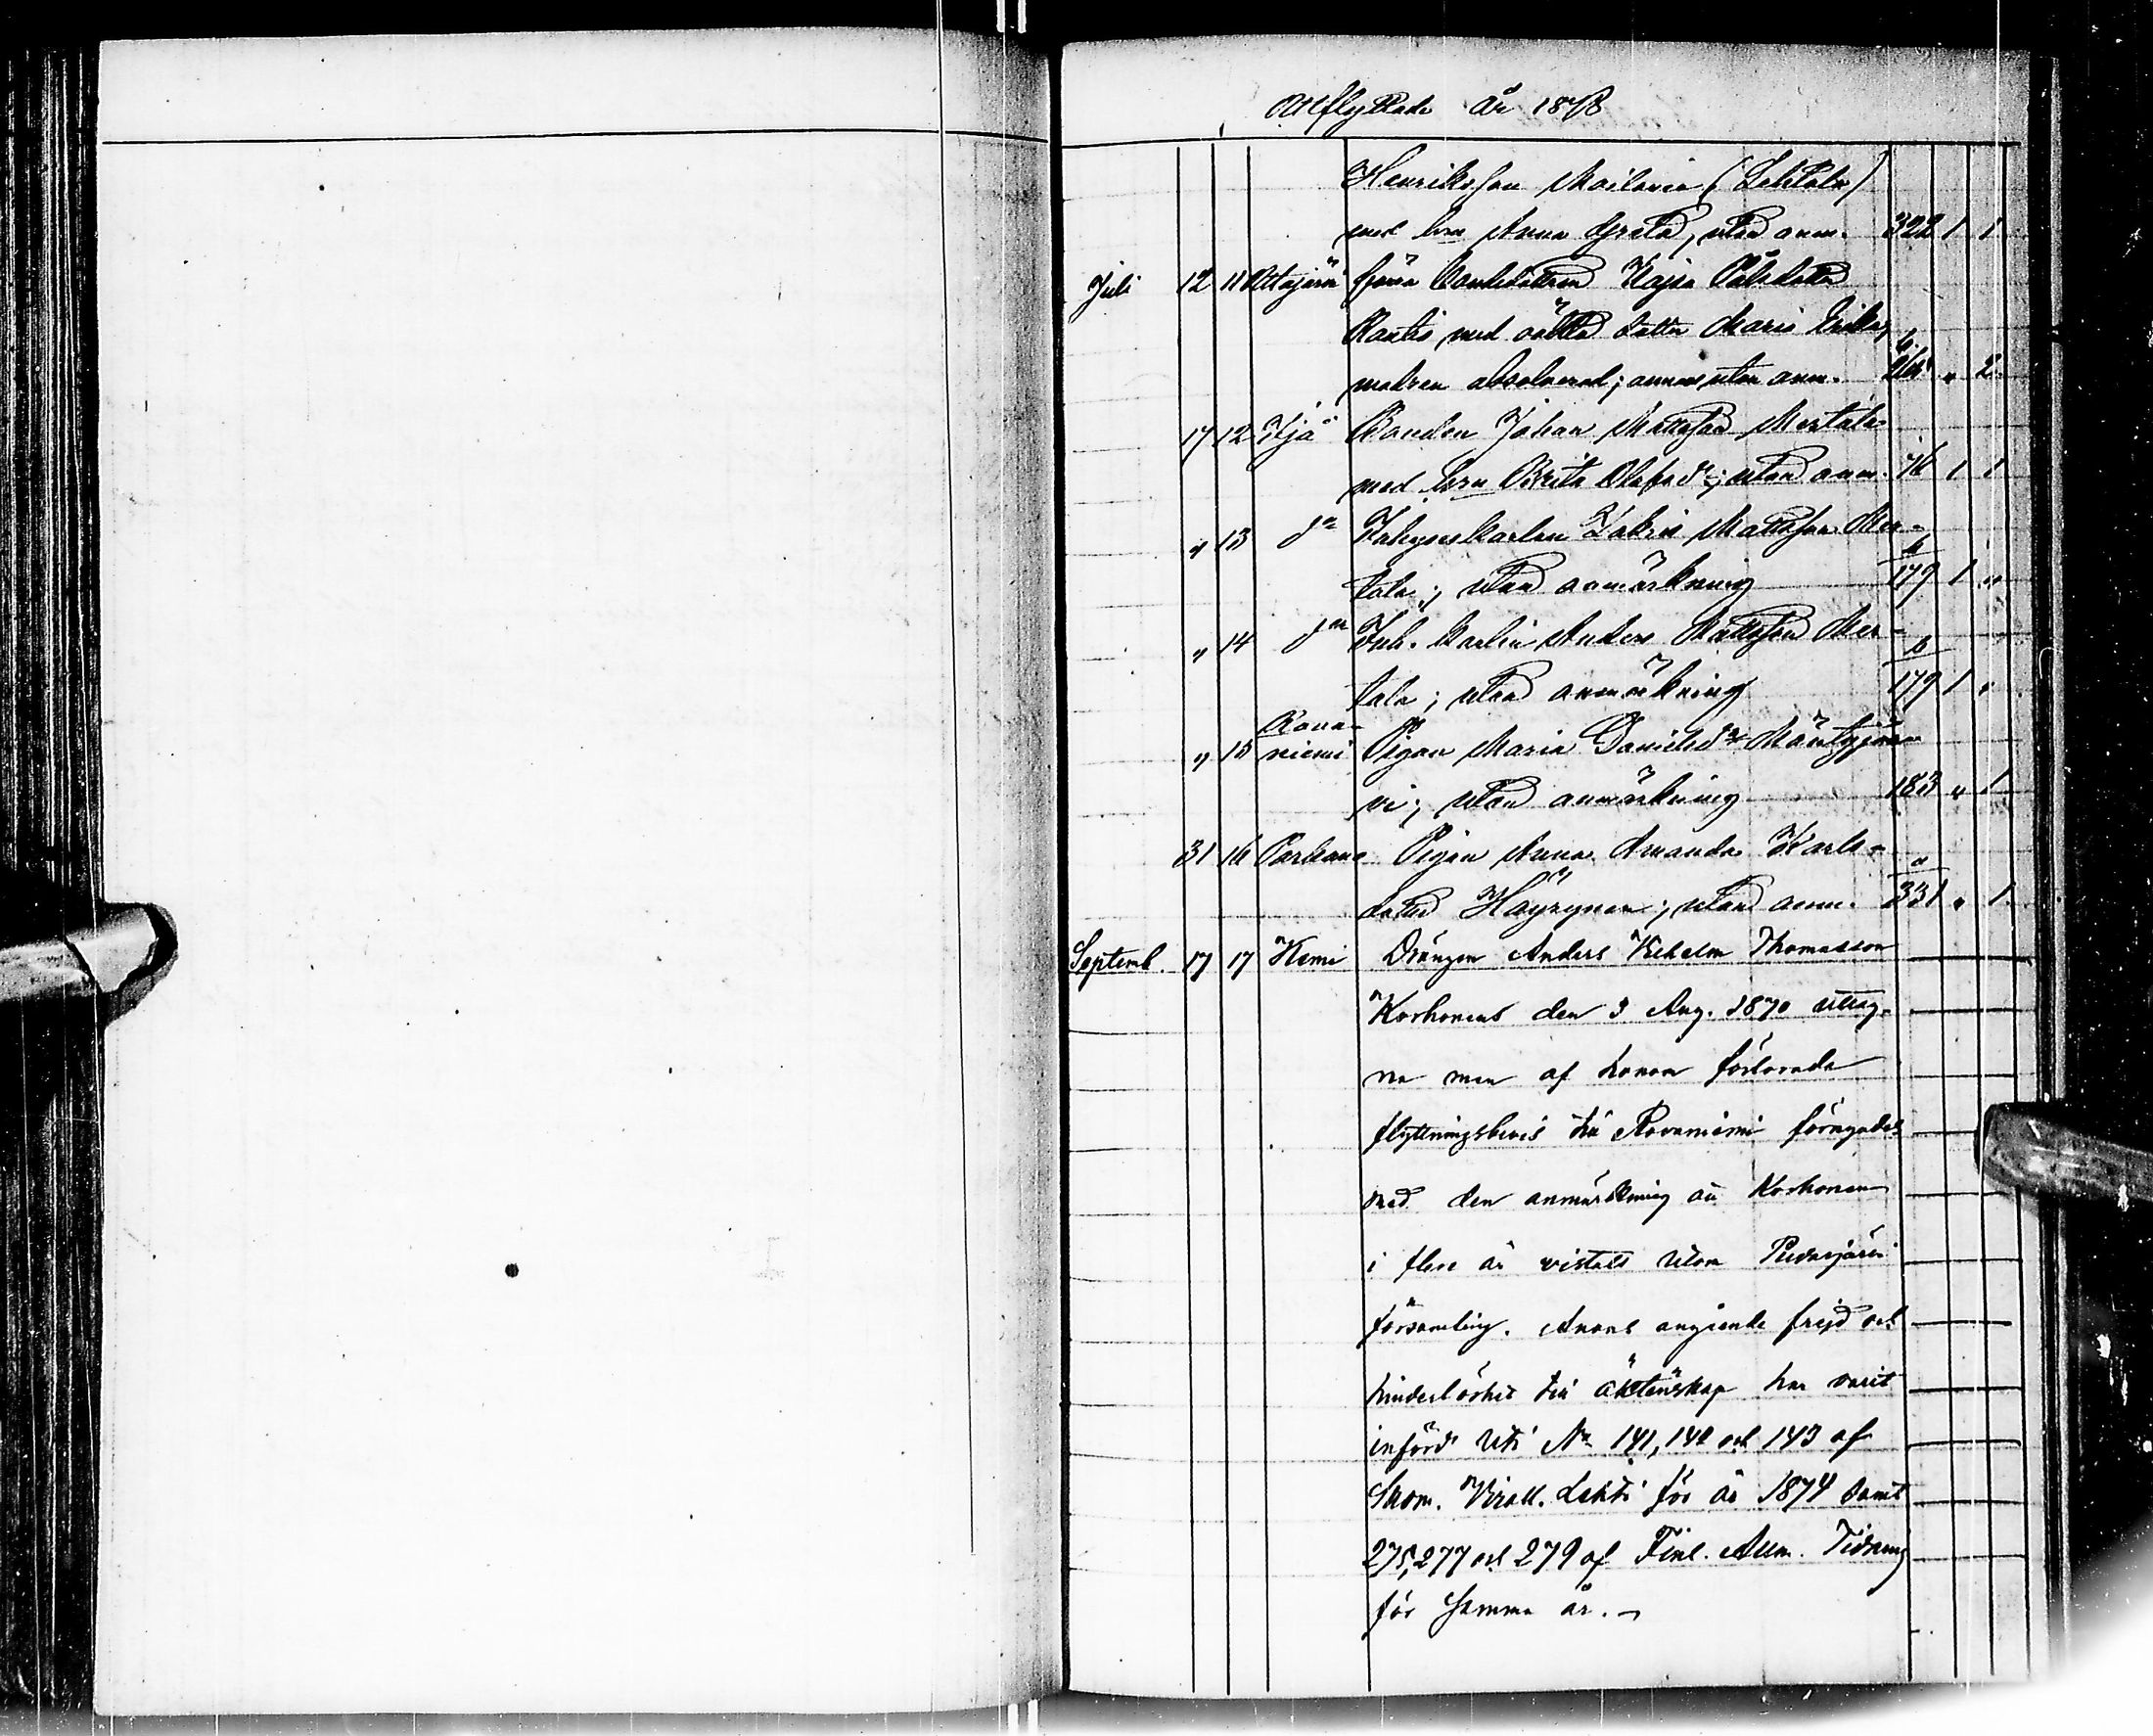 Utflyttade år 1878
Henriksson Moilanen (Lehtola)
med hru Anna Greta, utan anm. 322 1 1
Juli 12 11 Uttajärvi förra bondedottren Kajsa Påls dotter
Rautio med oäkta dotter Maria Erika,
modren absolverad; annars utan anm. 2
17 12 Ijå Bonden Johan Mattsson Mertala
med hru Brita Olofsdr; utan anm. 76 1 1
" 13 do Inhyseskarlen Zakris Mattsson Mer-
tala; utan anmärkning 179 1 "
" 14 do Inh. karlen Anders Mattsson Mer-
tala; utan anmärkning 179 1 "
Rova-
" 15 niemi Pigan Maria Danielsdr Mäntyjär-
vi; utan anmärkning 183 " 1
31 16 Parkano Pigan Anna Amanda Karls-
dotter Häyrynen; utan anm. 331 " 1
Septemb. 17 17 Kemi Drängen Anders Vilhelm Thomasson
Korhonens den 3 Aug. 1870 uttag-
na men af honom förlorade
flyttningsbevis till Rovaniemi förnyades
med den anmärkning att Korhonen
i flere år vistats utom Pudasjärvi
församling. Anons angående frejd och
hinderlöshet till äktenskap har varit
införd uti No 141, 142 och 143 af
Suom. Virall. Lehti för år 1874 samt
275, 277 och 279 af Finl. Allm. Tidning
för samma år. —